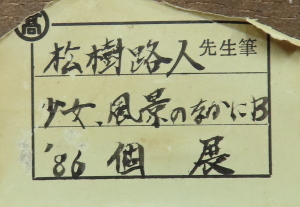 髙
松樹路人先生筆
少女、風景のなかにB
'86 個展